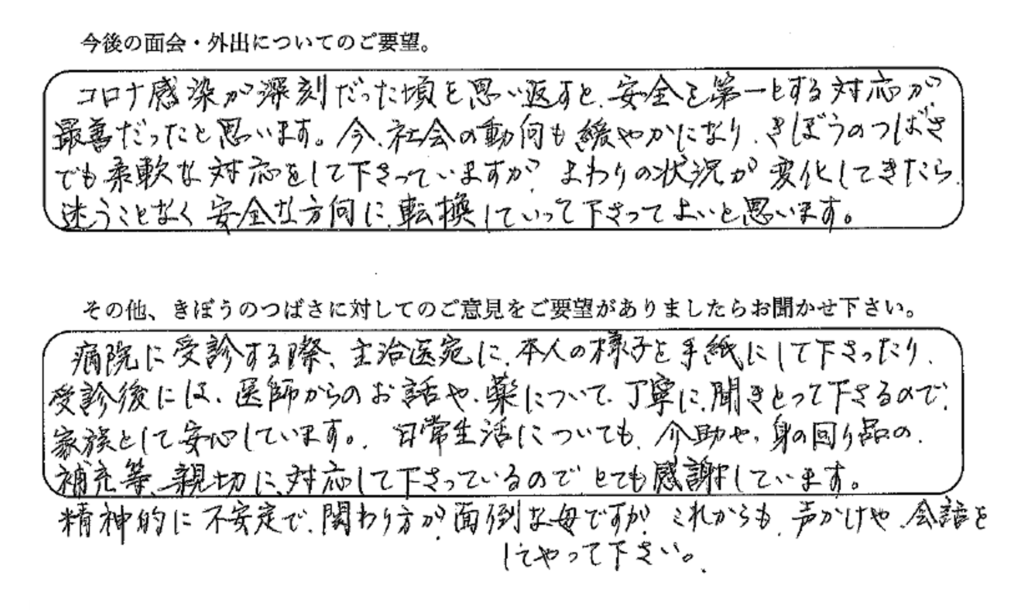 今後の面会・外出についてのご要望。
コロナ感染が深刻だった頃を思い返すと、安全を第一とする対応が
最善だったと思います。今、社会の動向も緩やかになり、きぼうのつばさ
でも柔軟な対応をして下さっていますが、まわりの状況が変化してきたら、
迷うことなく安全な方向に、転換していって下さってよいと思います。
その他、きぼうのつばさに対してのご意見をご要望がありましたらお聞かせ下さい。
病院に受診する際、主治医宛に、本人の様子を手紙にして下さったり、
受診後には、医師からのお話や、薬について、丁寧に、聞きとって下さるので、
家族として安心しています。日常生活についても、介助や、身の回り品の
補充等、親切に、対応して下さっているのでとても感謝しています。
精神的に不安定で、関わり方が、面倒な母ですが、これからも、声かけや、会話を
してやって下さい。